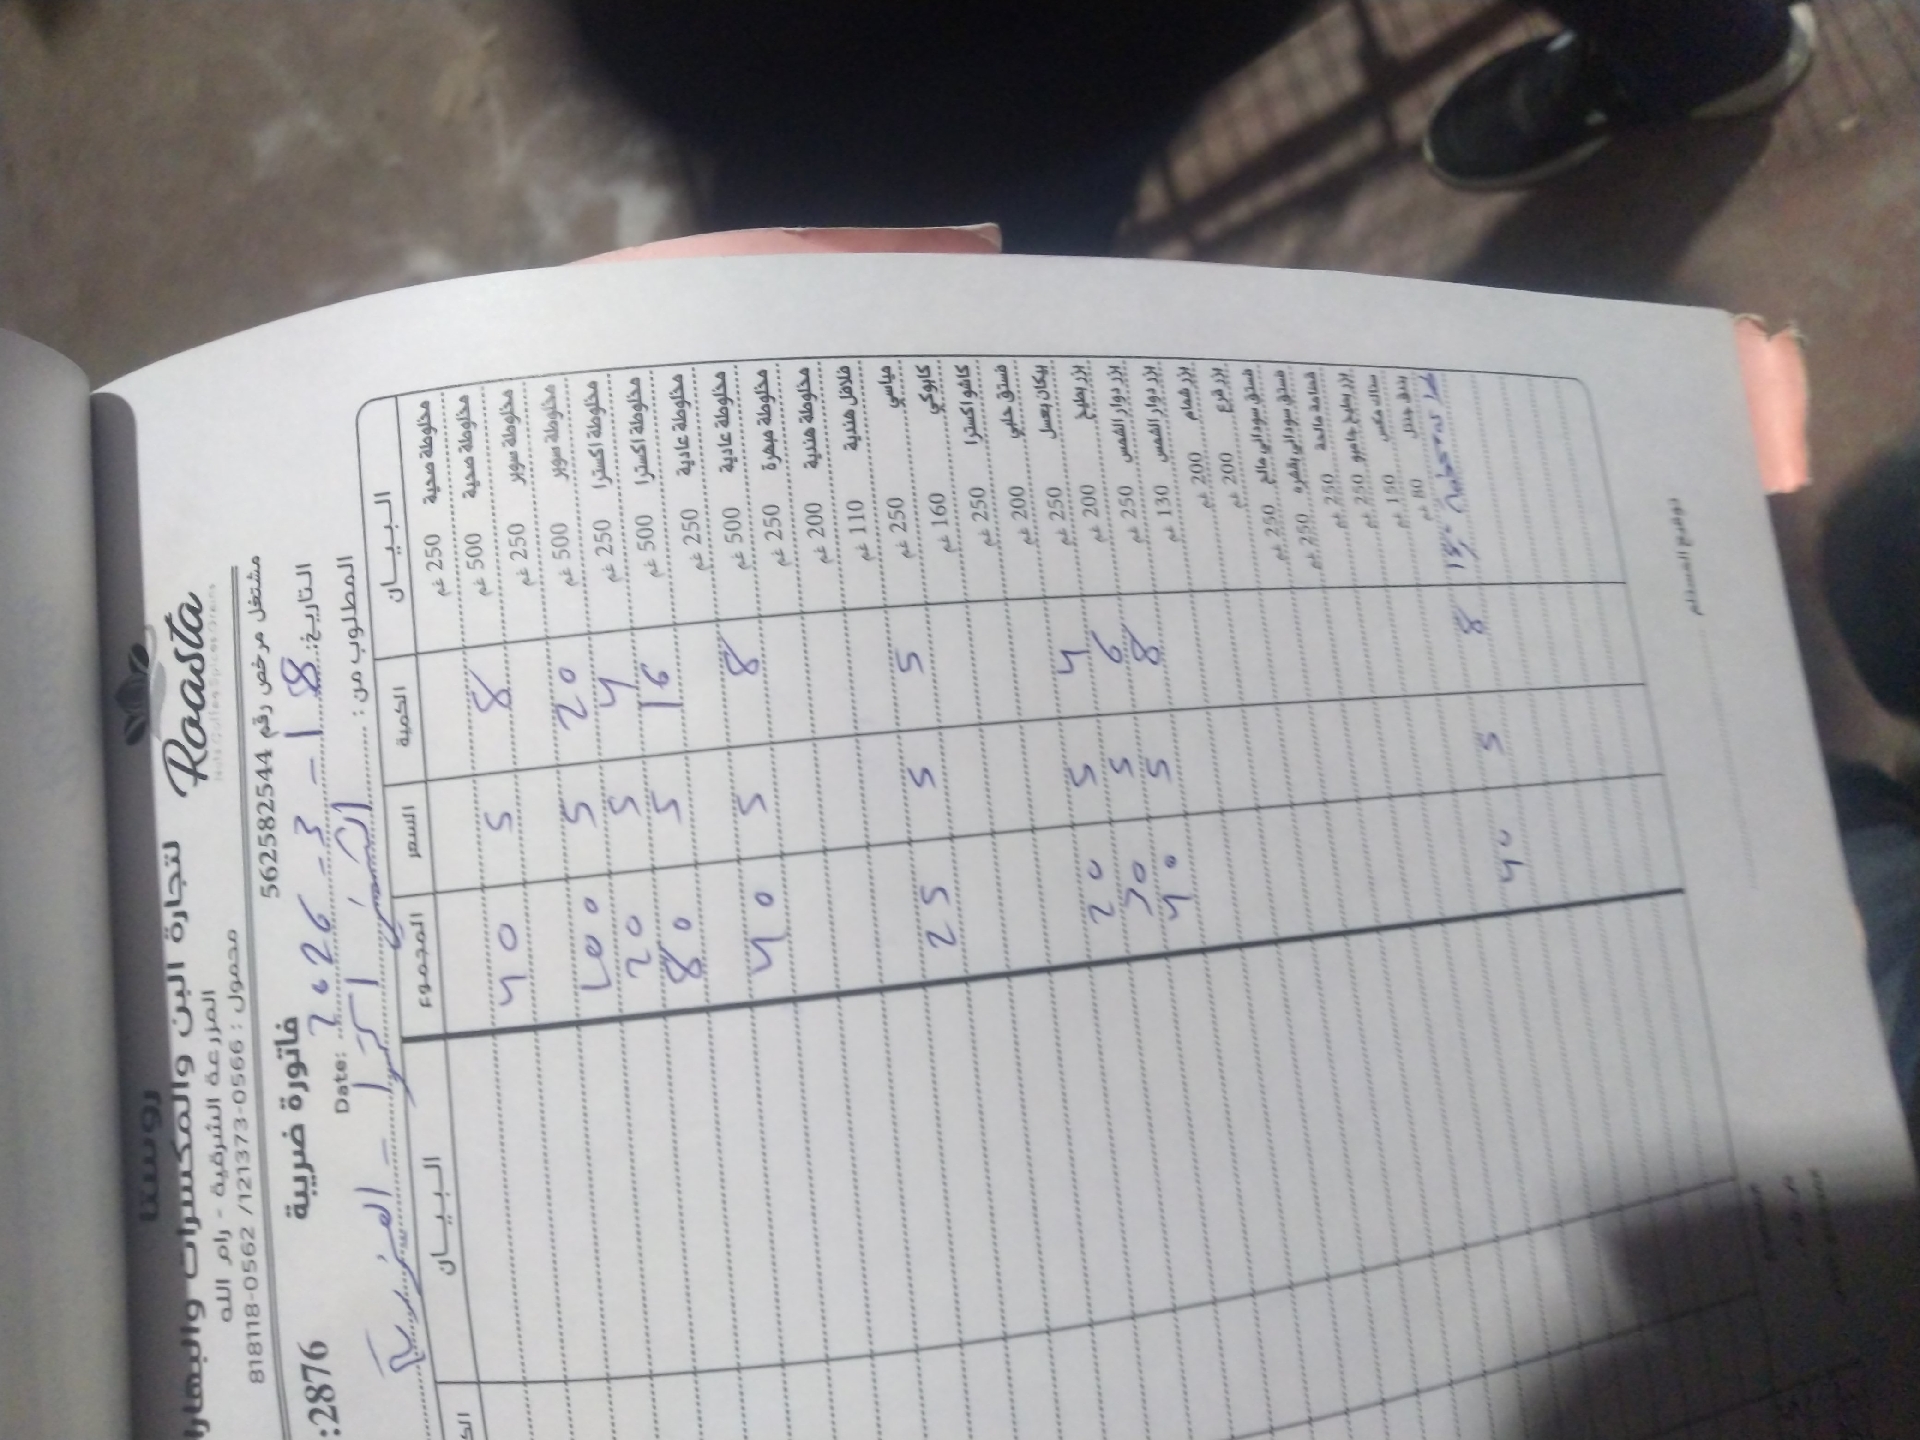 روستا
Roasta
لتجارة البن والمكسرات والبهارا
Nuts Coffee Spices Ores
المزرعة الشرقية - رام الله
محمول : 0566-121373/ 0562-818118
مشتغل مرخص رقم 562582544
فاتورة ضريبية
:2876
التاريخ: 18 - 3 - 2026 Date:
المطلوب من :
البيان الكمية السعر المجموع البيان
مخلوطة صحية 250 غم
مخلوطة صحية 500 غم 8 5 40
مخلوطة سوبر 250 غم
مخلوطة سوبر 500 غم 20 5 100
مخلوطة اكسترا 250 غم 4 5 20
مخلوطة اكسترا 500 غم 16 5 80
مخلوطة عادية 250 غم
مخلوطة عادية 500 غم 8 5 40
مخلوطة مبهرة 250 غم
مخلوطة هندية 200 غم
فلافل هندية 110 غم
مياسي 250 غم 5 5 25
كابوكي 160 غم
كاشو اكسترا 250 غم
فستق حلبي 200 غم
بيكان بعسل 250 غم
بزر بطيخ 200 غم 4 5 20
بزر دوار الشمس 250 غم 6 5 30
بزر دوار الشمس 130 غم 8 5 40
بزر شمام 200 غم
بزر قرع 200 غم
فستق سوداني مالح 250 غم
فستق سوداني بقشره 250 غم
قضامة مالحة 250 غم
بزر بطيخ جامبو 250 غم
سناك مكس 150 غم
بندق جندل 80 غم
8 5 40
توقيع المستلم